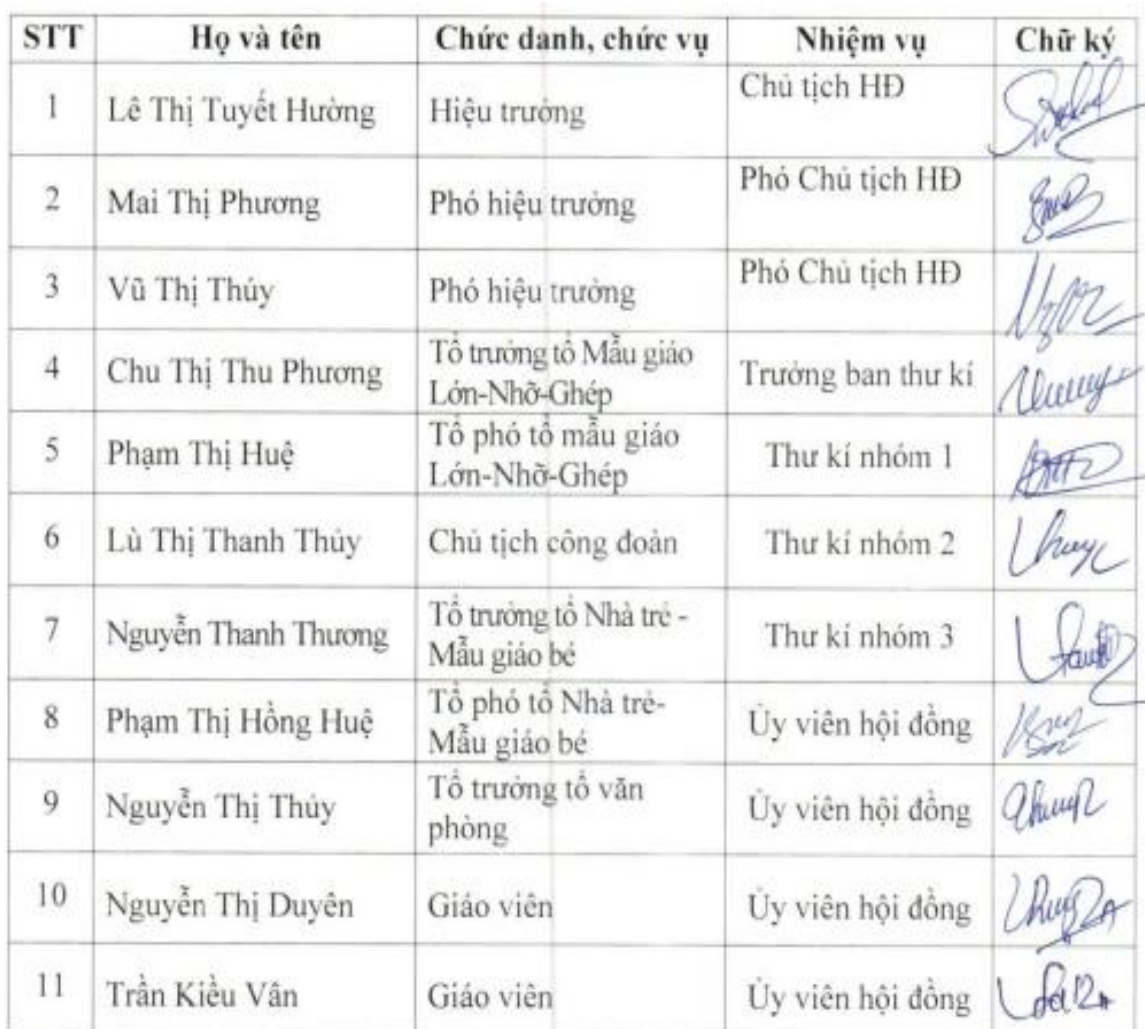 STT Họ và tên Chức danh, chức vụ Nhiệm vụ Chữ ký
1 Lê Thị Tuyết Hường Hiệu trưởng Chủ tịch HĐ
2 Mai Thị Phương Phó hiệu trưởng Phó Chủ tịch HĐ
3 Vũ Thị Thúy Phó hiệu trưởng Phó Chủ tịch HĐ
4 Chu Thị Thu Phương Tổ trưởng tổ Mẫu giáo Trưởng ban thư kí
Lớn-Nhỡ-Ghép
5 Phạm Thị Huệ Tổ phó tổ mẫu giáo Thư kí nhóm 1
Lớn-Nhỡ-Ghép
6 Lù Thị Thanh Thủy Chủ tịch công đoàn Thư kí nhóm 2
7 Nguyễn Thanh Thương Tổ trưởng tổ Nhà trẻ - Thư kí nhóm 3
Mẫu giáo bé
8 Phạm Thị Hồng Huệ Tổ phó tổ Nhà trẻ- Ủy viên hội đồng
Mẫu giáo bé
9 Nguyễn Thị Thủy Tổ trưởng tổ văn Ủy viên hội đồng
phòng
10 Nguyễn Thị Duyên Giáo viên Ủy viên hội đồng
11 Trần Kiều Vân Giáo viên Ủy viên hội đồng